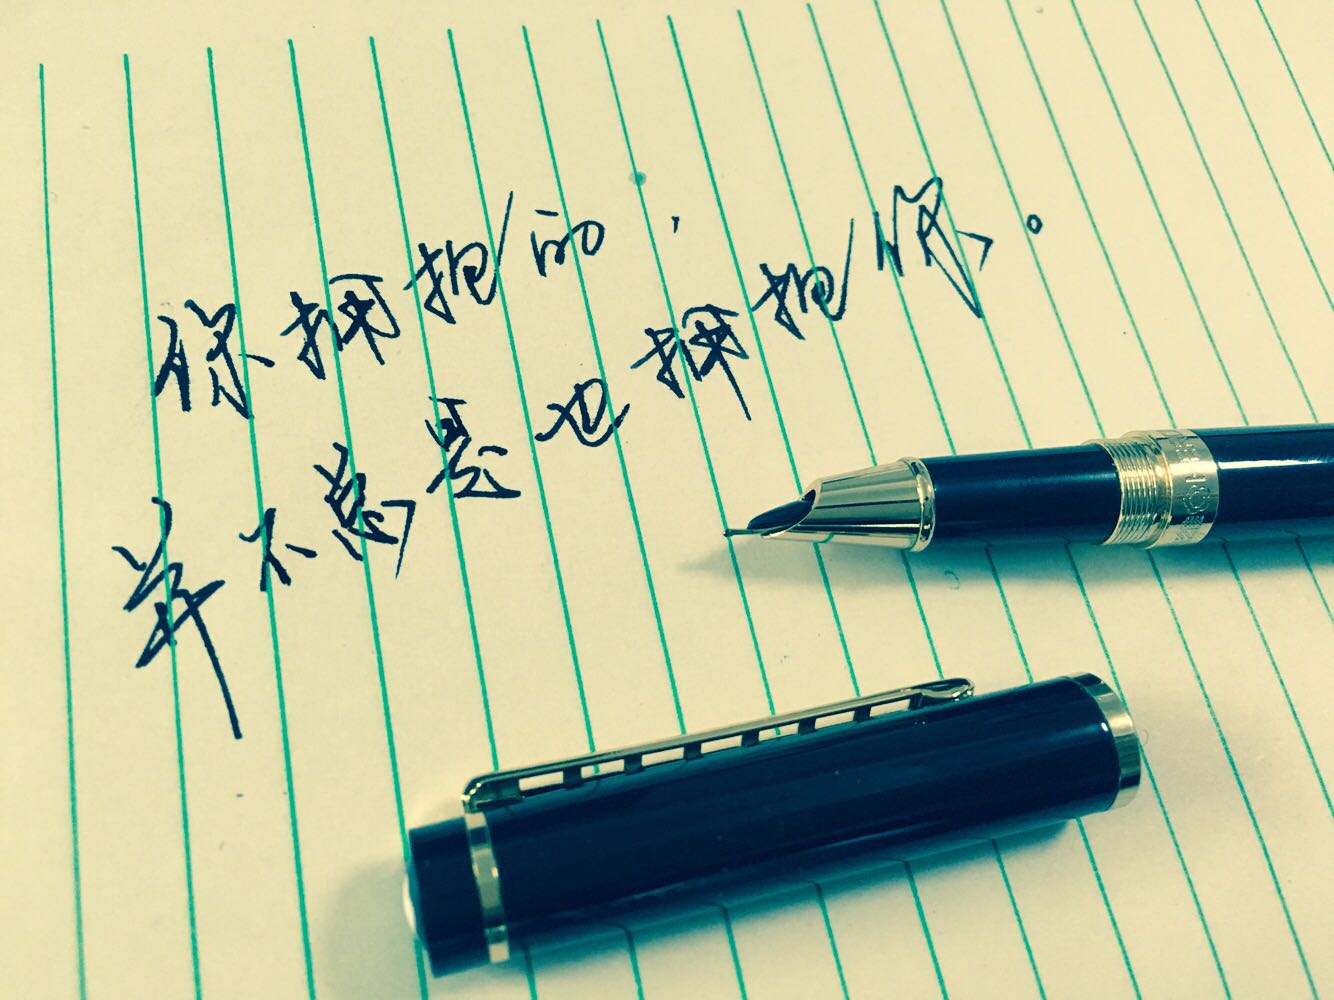 你拥抱的，
并不总是也拥抱你。